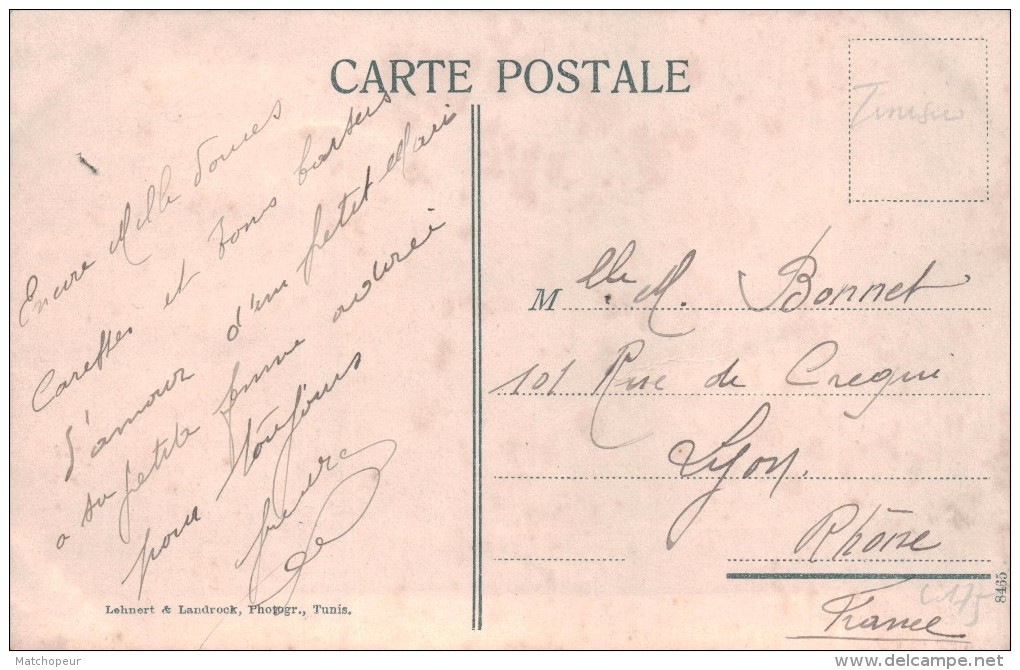 CARTE POSTALE
Tunisie
Encore Mille douces
Caresses et bons baisers
d'amour d'un petit Mari
a sa petite femme adorée
pour toujours
Mlle M. Bonnet
101 Rue de Crequi
Lyon.
Rhône
France
8465
Lehnert & Landrock, Photogr., Tunis.
Matchopeur
delcampe.net